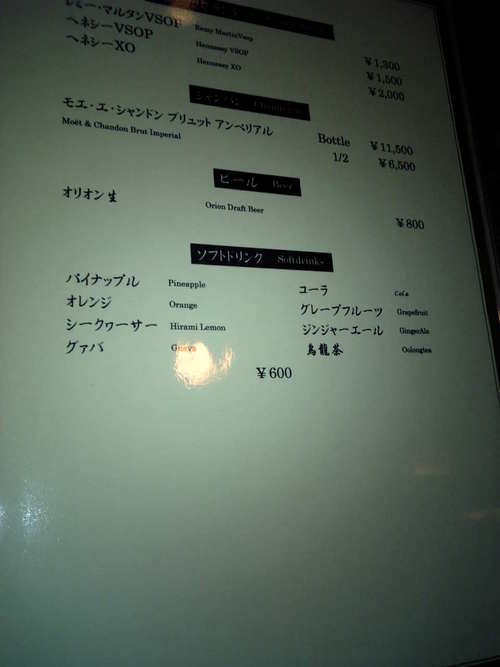 レミー・マルタンVSOP Remy MartinVsop ¥1,300
ヘネシーVSOP Hennessy VSOP ¥1,500
ヘネシーXO Hennessy XO ¥2,000
シャンパン Champagne
モエ・エ・シャンドン ブリュット アンペリアル Bottle ¥11,500
Moët & Chandon Brut Imperial 1/2 ¥6,500
ビール Beer
オリオン生 Orion Draft Beer ¥800
ソフトドリンク Softdrinks
パイナップル Pineapple コーラ Cola
オレンジ Orange グレープフルーツ Grapefruit
シークヮーサー Hirami Lemon ジンジャーエール GingerAle
グァバ Guava 烏龍茶 Oolongtea
¥600